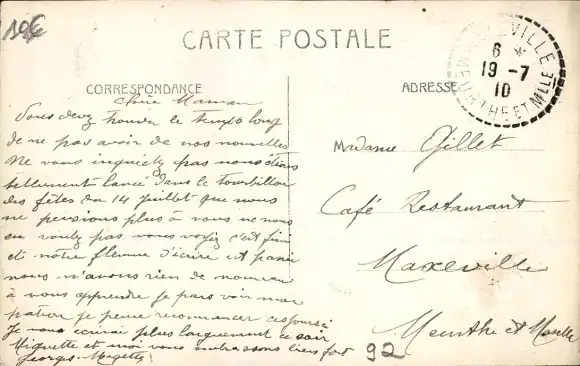 10€
CARTE POSTALE
MAXEVILLE
6 *
19 -7
10
MEURTHE ET Mlle
CORRESPONDANCE
ADRESSE
Chère Maman
Vous devez trouver le temps long
de ne pas avoir de nos nouvelles
Ne vous inquietez pas nous étions
tellement lancé dans le tourbillon
des fêtes du 14 juillet que nous
ne pensions plus à vous ne nous
en voulez pas vous voyez c'est fini
et notre flemme d'écrire est passée
nous n'avons rien de nouveau
à vous apprendre je pars voir mon
patron je pense recommencer ces jours ci
Je vous ecrirai plus longuement ce soir
Miguette et moi vous embrassons bien fort
Georges - Magette
Madame Gillet
Café Restaurant
Maxeville
Meurthe et Moselle
92